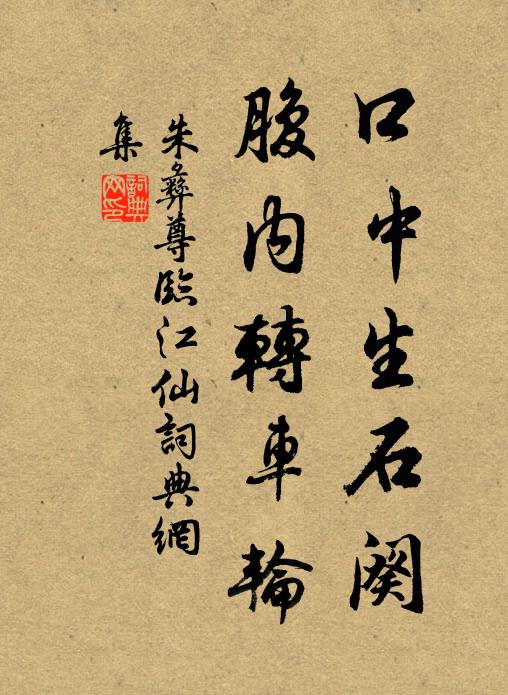 口中生石闕
腹內轉車輪
朱彝尊臨江仙詞典網
集
詞典網印